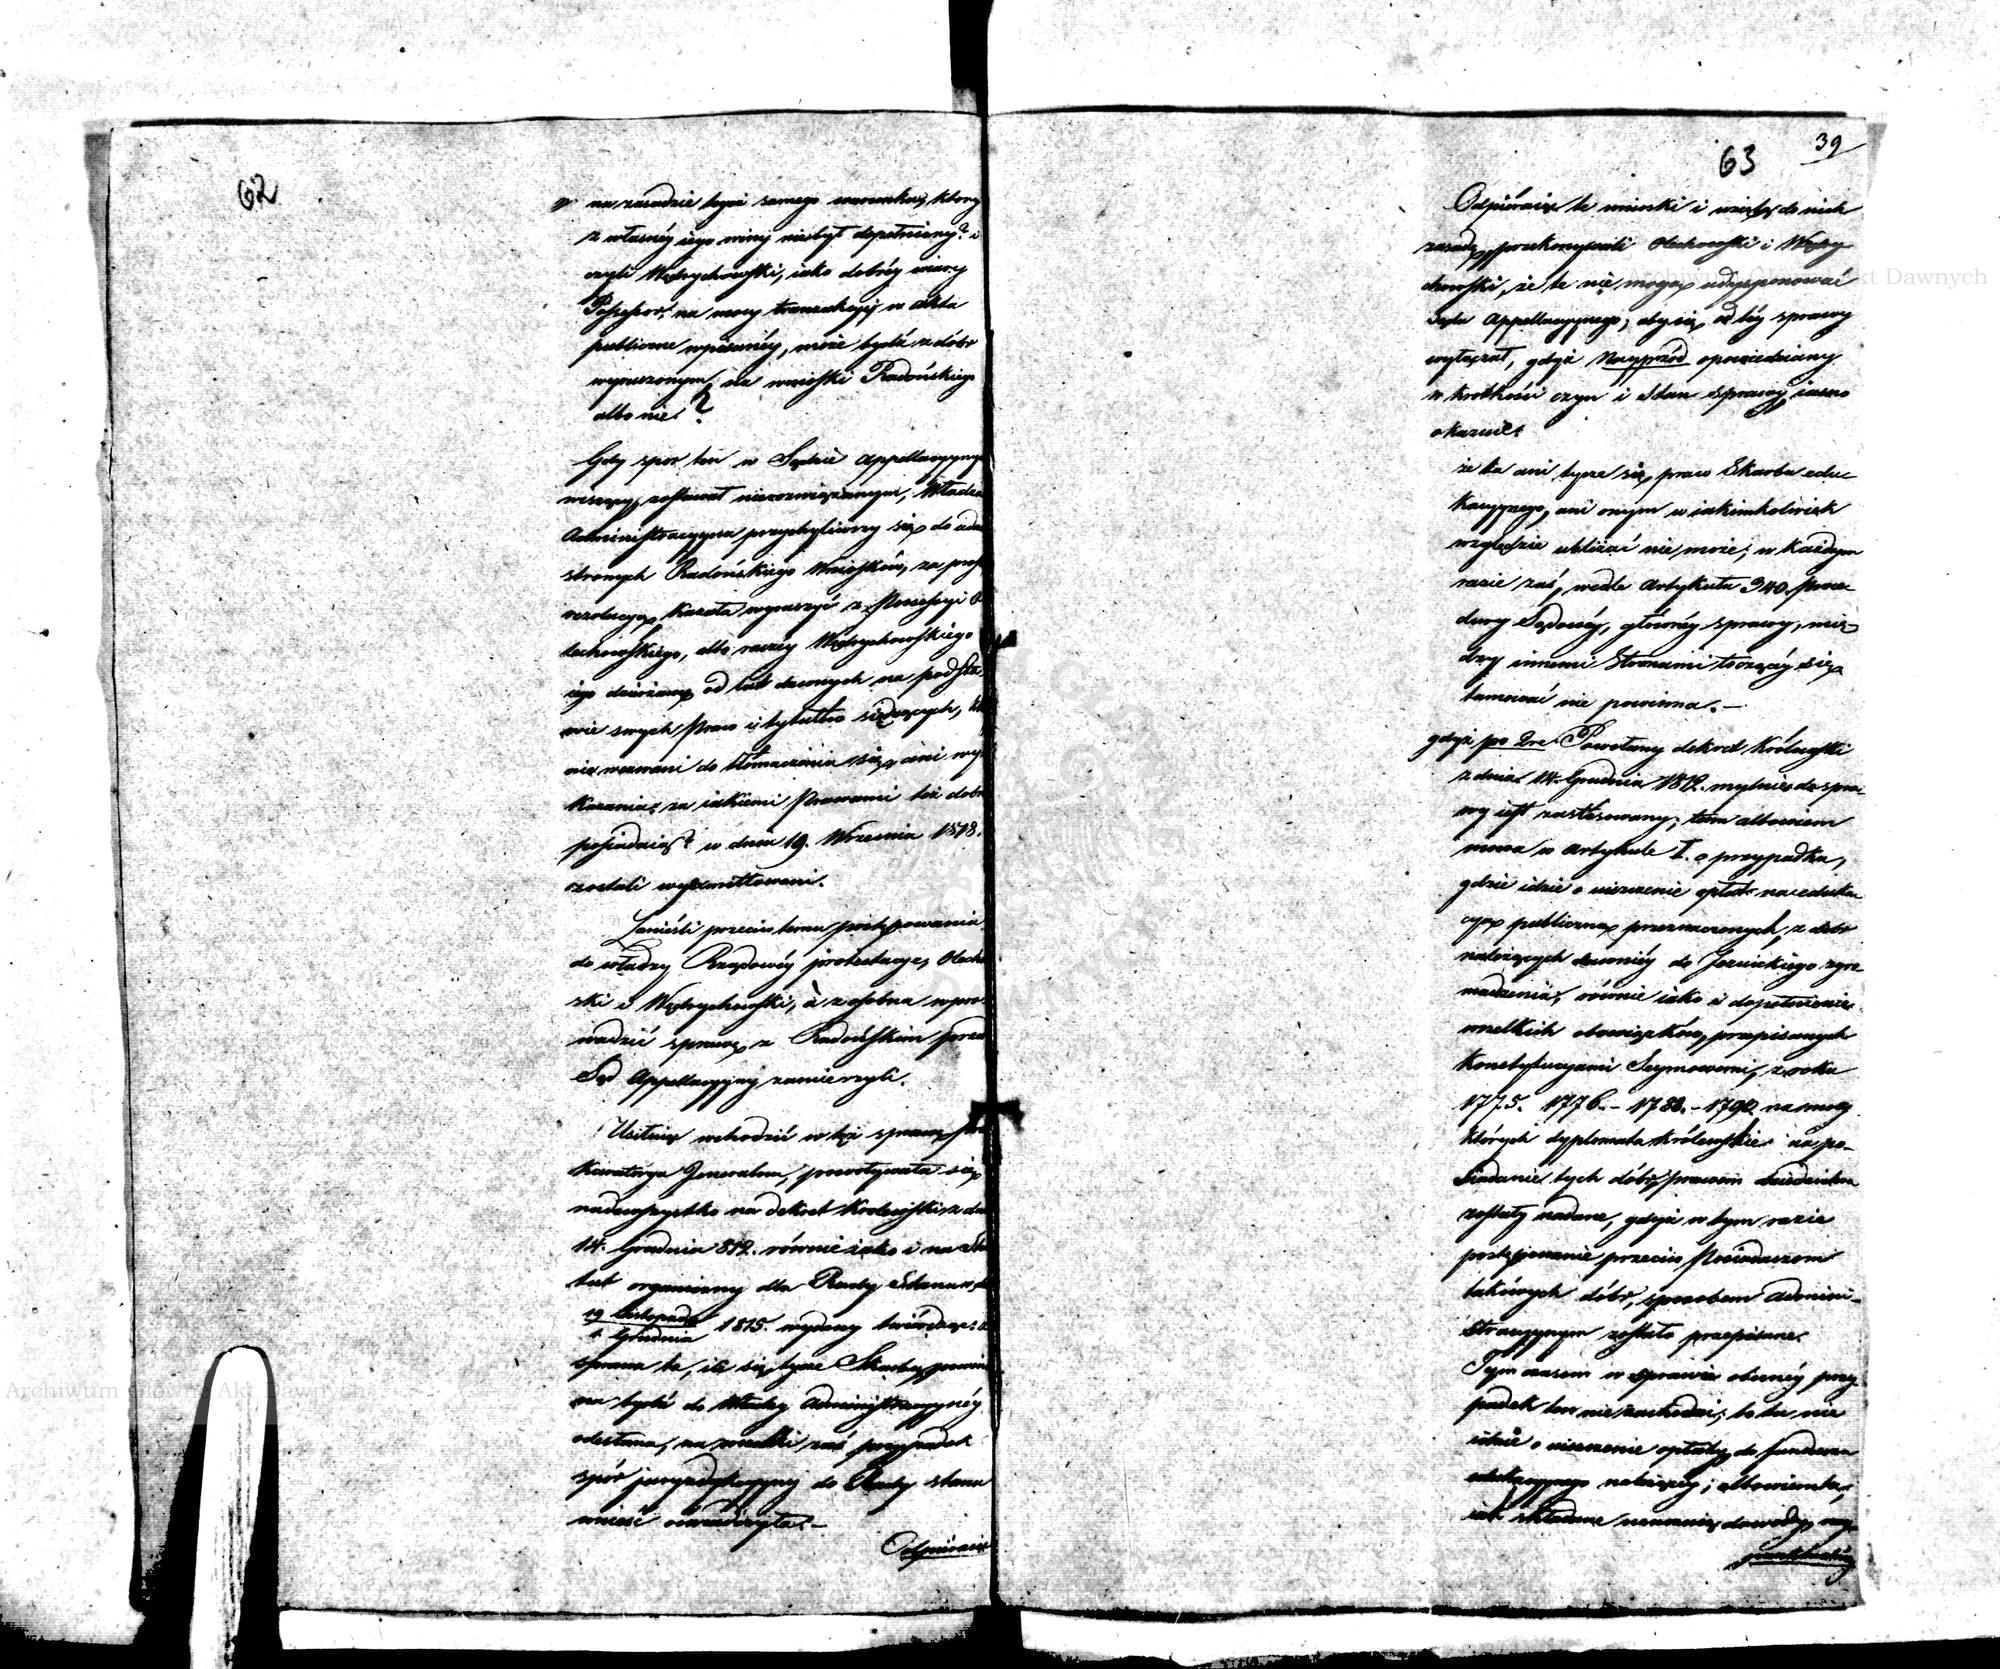 62
na zasadzie tegoż samego warunku, który
z własnéy iego winy niebył dopełniony? i
czyli Wędrychowski, iako dobréy wiary
Possessor, na mocy tranzakcyi w akta
publiczne wpisanéy, może bydź z dóbr
wyruszonym, na wnioski Radońskiego
albo nie?
Gdy spor ten w Sądzie Appellacyyny
wiszący, zostawał nierozwiązanym, Władza
Administracyyna przychyliwszy się do
stronnych Radońskiego Wniosków, za
rezolucyą, kazała wyruszyć z Possessyi O
lechowskiego, albo raczéy Wędrychowskiego
iego dzierżawcę od lat dawnych na podsta
wie swych Praw i tytułów siedzących,
nie wezwani do tłómaczenia się, ani wy
kazania, za iakiemi Prawami też dobra
posiadaią? w dniu 19. Września 1818.
zostali wyexmittowani.
Zanieśli przeciw temu postępowaniu
do władzy Rządowéy protestacye, Olecho
ski i Wędrychowski, à z osobna wpro
wadzić sprawę z Radońskim przed
Sąd Appellacyyny zamierzyli.
Usiłuiąc wchodzić w téż sprawę Pro
kuratorya Jeneralna, powoływała się
nadewszystko na dekret Królewski z dnia
14. Grudnia 812. równie iako i na Sta
tut organiczny dla Rady Stanu
19 Listopada
1. Grudnia 1815. wydany twierdząc:
sprawa ta, iż się tycze Skarbu, powin
na bydź do Władzy Administracyynéy
odesłana, na wszelki zaś przypadek
spór juryzdykcyyny do Rady Stanu
wnieść oświadczyła.—
Odpieraiąc
39
63
Odpieraiąc te wnioski i wzięte do nich
zasady, przekonywali Olechowski i Wędry
chowski, że te nie mogą usposobować
Sądu Appellacyynego, aby się od téy sprawy
wyłączał, gdyż Nayprzód opowiedziany
w krótkości czyn i Stan Sprawy iasno
okazuie:
że ta ani tycze się praw Skarbu edu
kacyynego, ani onym w iakimkolwiek
względzie ubliżać nie może; w każdym
razie zaś, wedle Artykułu 340. Proce
dury Sądowéy, głównéy sprawy, mię
dzy innemi Stronami toczącéy się
tamować nie powinna.—
gdyż po 2re Powołany dekret Królewski
z dnia 14. Grudnia 1812. mylnie do spra
wy iest zastosowany; tam albowiem
mowa w Artykule I. o przypadku,
gdzie idzie o uiszczenie opłat na eduka
cyą publiczną przeznaczonych, z dóbr
należących dawniéy do Jezuickiego zgro
madzenia, równie iako i dopełnienie
wszelkich obowiązków, przepisanych
Konstytucyami Seymowemi, z roku
1775. 1776.– 1788.–1790. na mocy
których dyplomata Królewskie na po
siadanie tych dóbr prawem dziedzictwa
zostały nadane, gdyż w tym razie
postępowanie przeciw Posiadaczom
takowych dóbr, sposobem Admini-
stracyynym zostało przepisane.
Tym czasem w sprawie obecnéy przy
padek ten nie zachodzi; bo tu nie
idzie o uiszczenie opłaty do funduszu
edukacyynego należącéy; albowiem ta,
iak składane rocznie dowody, nay
punktualniéy